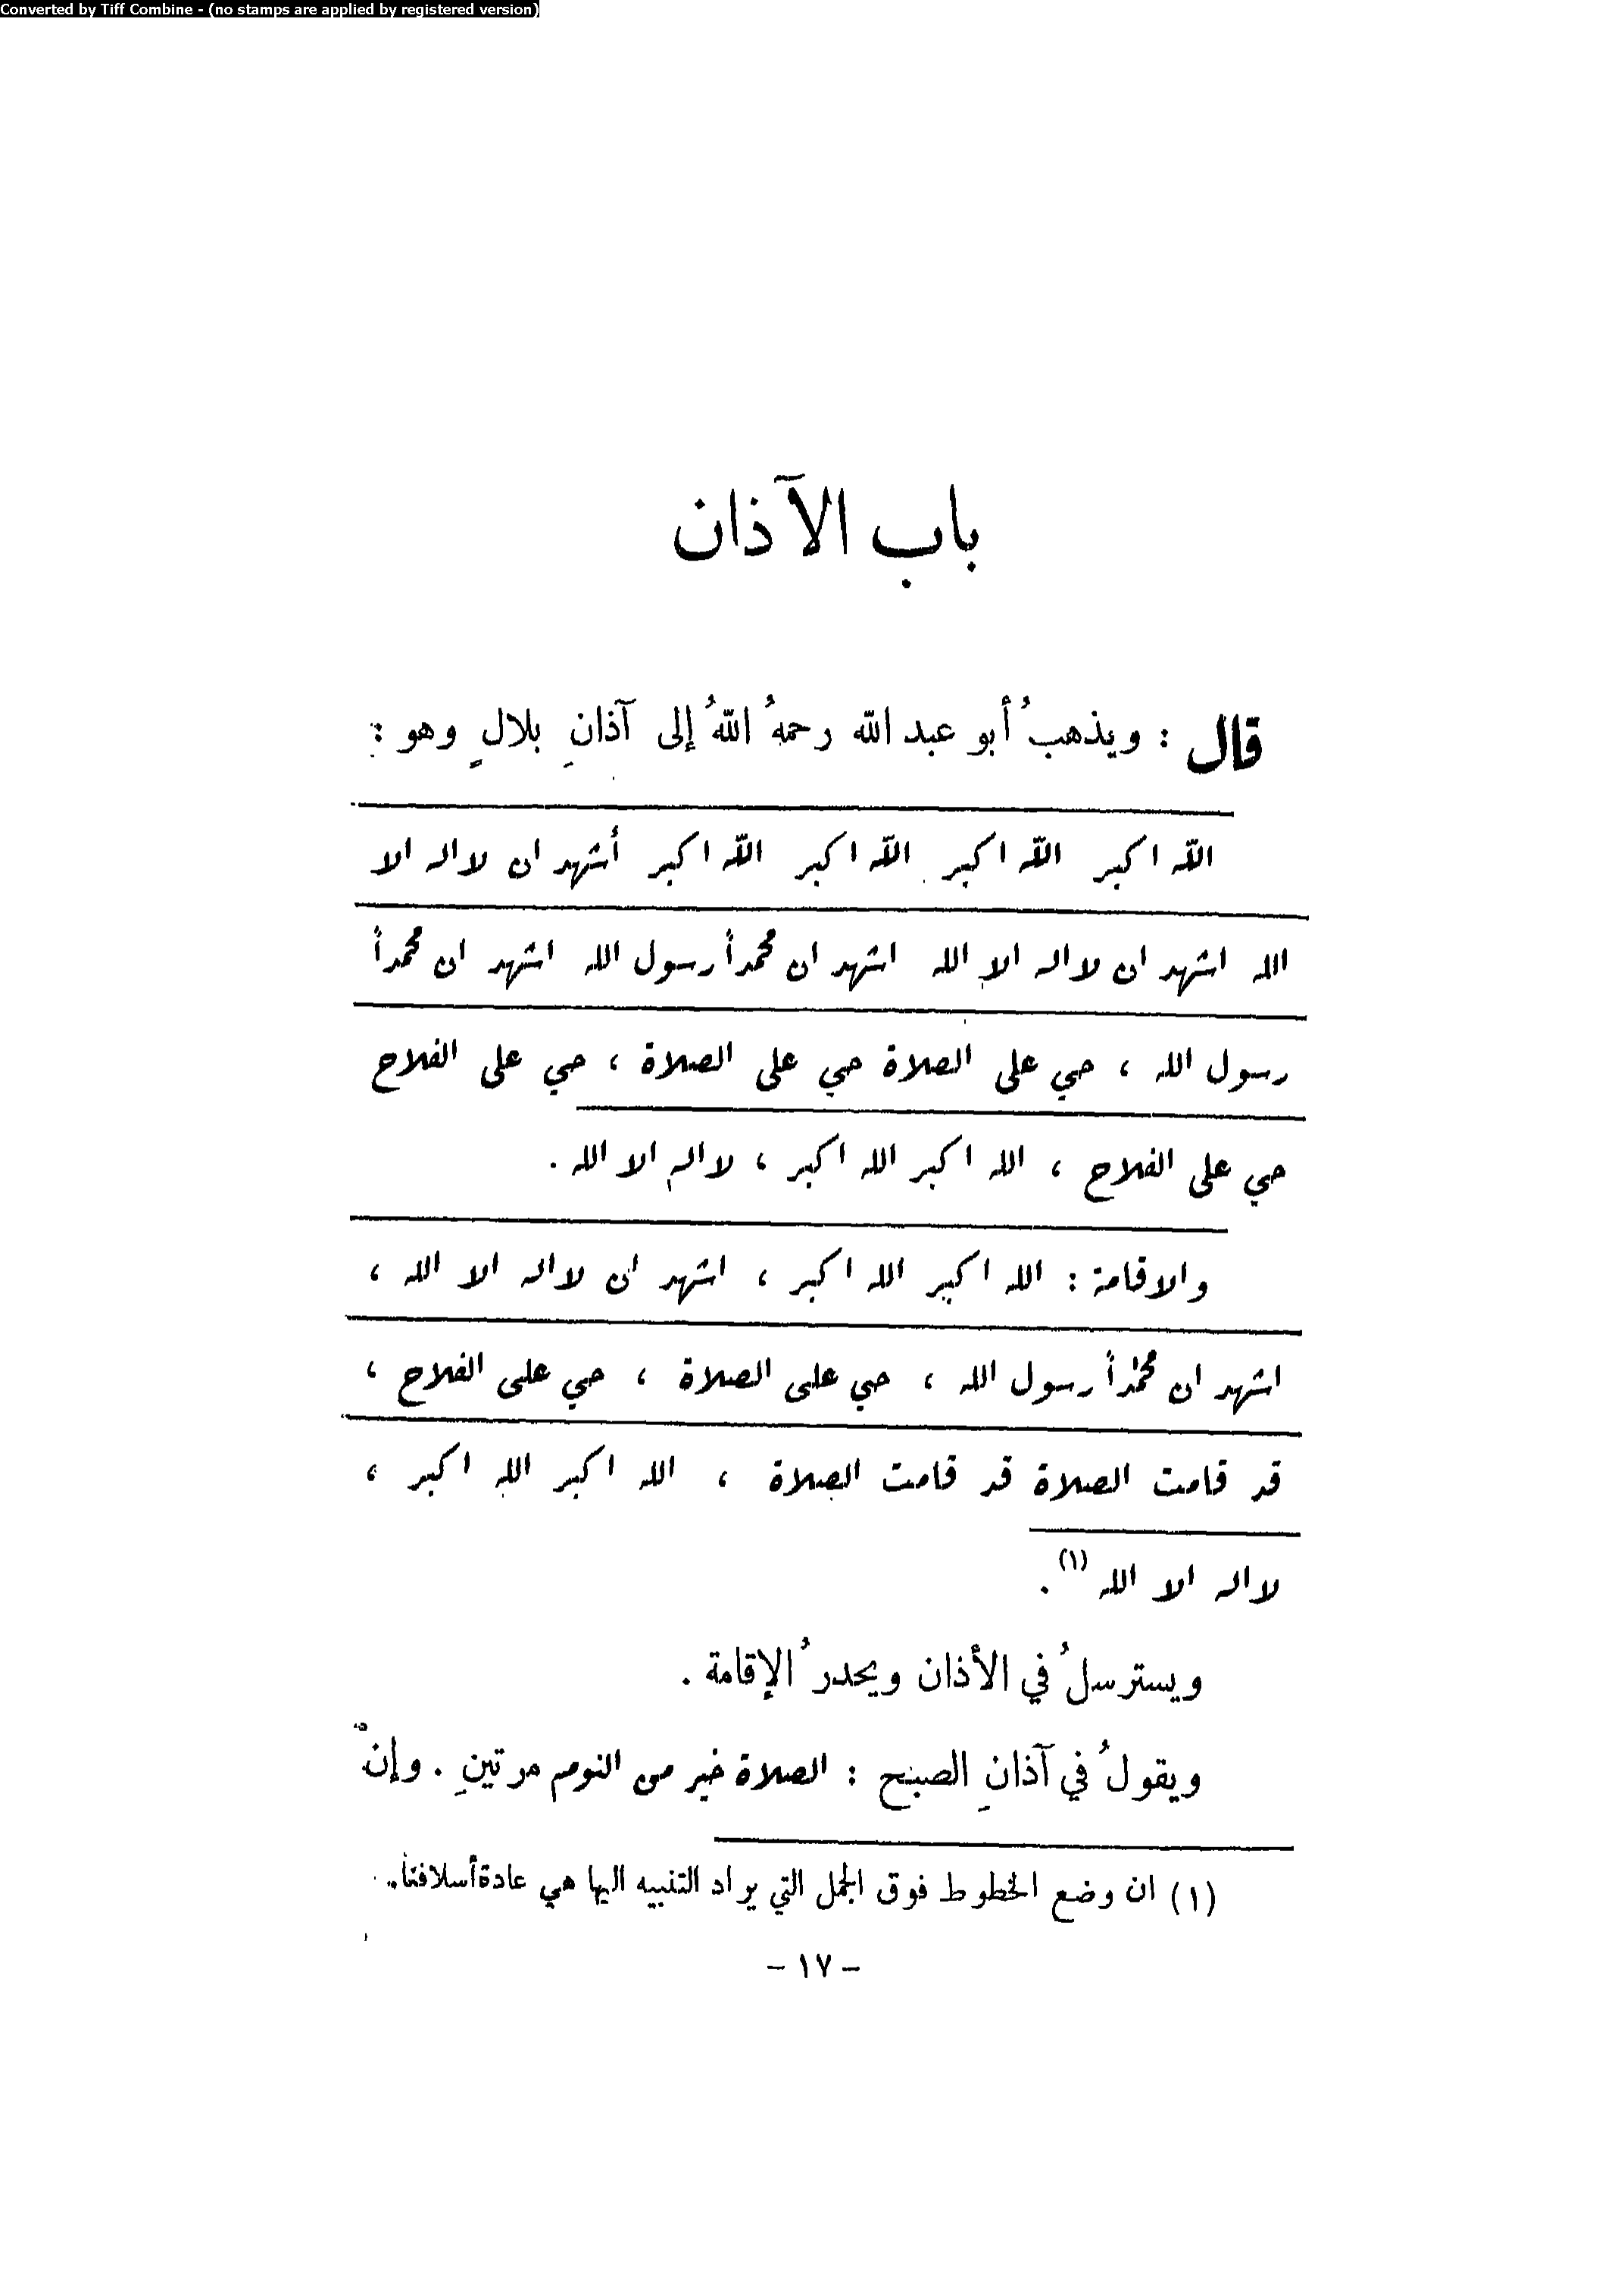 Converted by Tiff Combine - (no stamps are applied by registered version)
باب الآذان
قال : ويذهبُ أبو عبد الله رحمهُ اللهُ إلى آذانِ بلالٍ وهو :
الله اكبر الله اكبر الله اكبر الله اكبر أشهد ان لا اله الا
الله اشهد ان لا اله الا الله اشهد ان محمداً رسول الله اشهد ان محمداً
رسول الله ، حي على الصلاة حي على الصلاة ، حي على الفلاح
حي على الفلاح ، الله اكبر الله اكبر ، لا اله الا الله .
والاقامة : الله اكبر الله اكبر ، اشهد ان لا اله الا الله ،
اشهد ان محمداً رسول الله ، حي على الصلاة ، حي على الفلاح ،
قد قامت الصلاة قد قامت الصلاة ، الله اكبر الله اكبر ،
لا اله الا الله (١) .
ويسترسلُ في الأذان ويحدرُ الإقامة .
ويقولُ في آذانِ الصبح : الصلاة خير من النوم مرتينِ . وإنْ
(١) ان وضع الخطوط فوق الجمل التي يراد التنبيه اليها هي عادة أسلافنا.
- ١٧ -